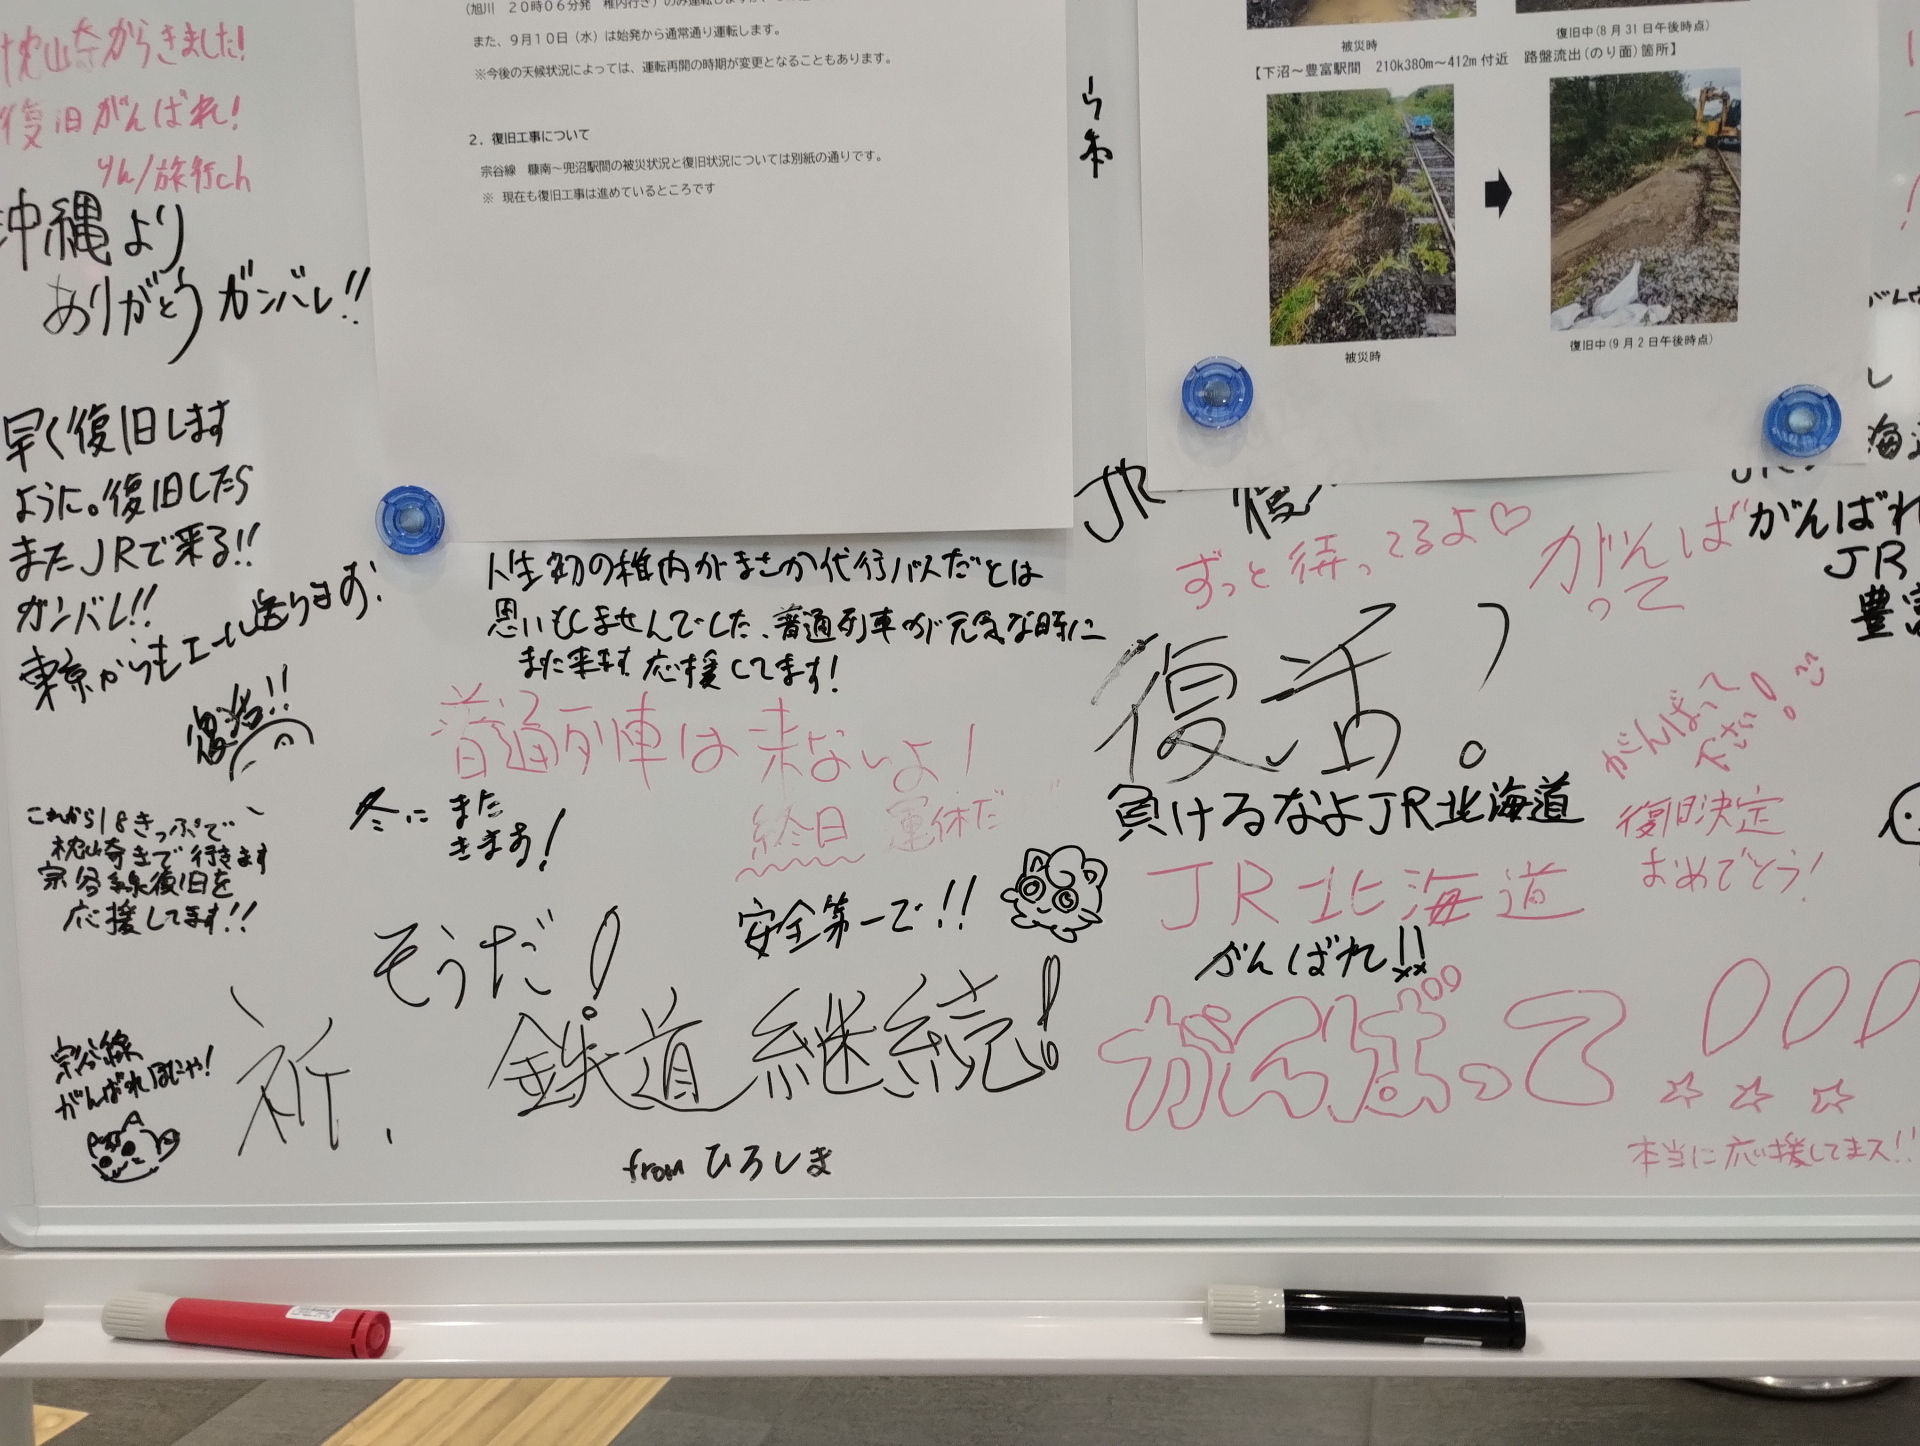 (旭川 20時06分発 稚内行き)のみ運転しますが、
また、9月10日(水)は始発から通常通り運転します。
※今後の天候状況によっては、運転再開の時期が変更となることもあります。
2．復旧工事について
宗谷線 糠南～兜沼駅間の被災状況と復旧状況については別紙の通りです。
※ 現在も復旧工事は進めているところです
被災時
復旧中(8月31日午後時点)
【下沼～豊富駅間 210k380m～412m付近 路盤流出(のり面)箇所】
被災時
復旧中(9月2日午後時点)
枕崎からきました!
復旧がんばれ!
りん/旅行ch
沖縄より
ありがとうガンバレ!!
早く復旧します
ように。復旧したら
またJRで来る!!
ガンバレ!!
東京からもエール送ります!
復活!!
これから18きっぷで
枕崎まで行きます
宗谷線復旧を
応援してます!!
宗谷線
がんばれほにゃ!
人生初の稚内がまさか代行バスだとは
思いもしませんでした、普通列車が元気な時に
また来ます 応援してます!
普通列車は来ないよ!
終日 運休だ
冬にまた
きます!
安全第一で!!
そうだ!
祈、鉄道継続!
from ひろしま
JR
ずっと待ってるよ♡
がんばって
復活?
負けるなよJR北海道
JR北海道
がんばれ!!
がんばって!!!
☆☆☆
本当に応援してまス!!
がんばって
下さい!
復旧決定
おめでとう!
がんばれ
JR